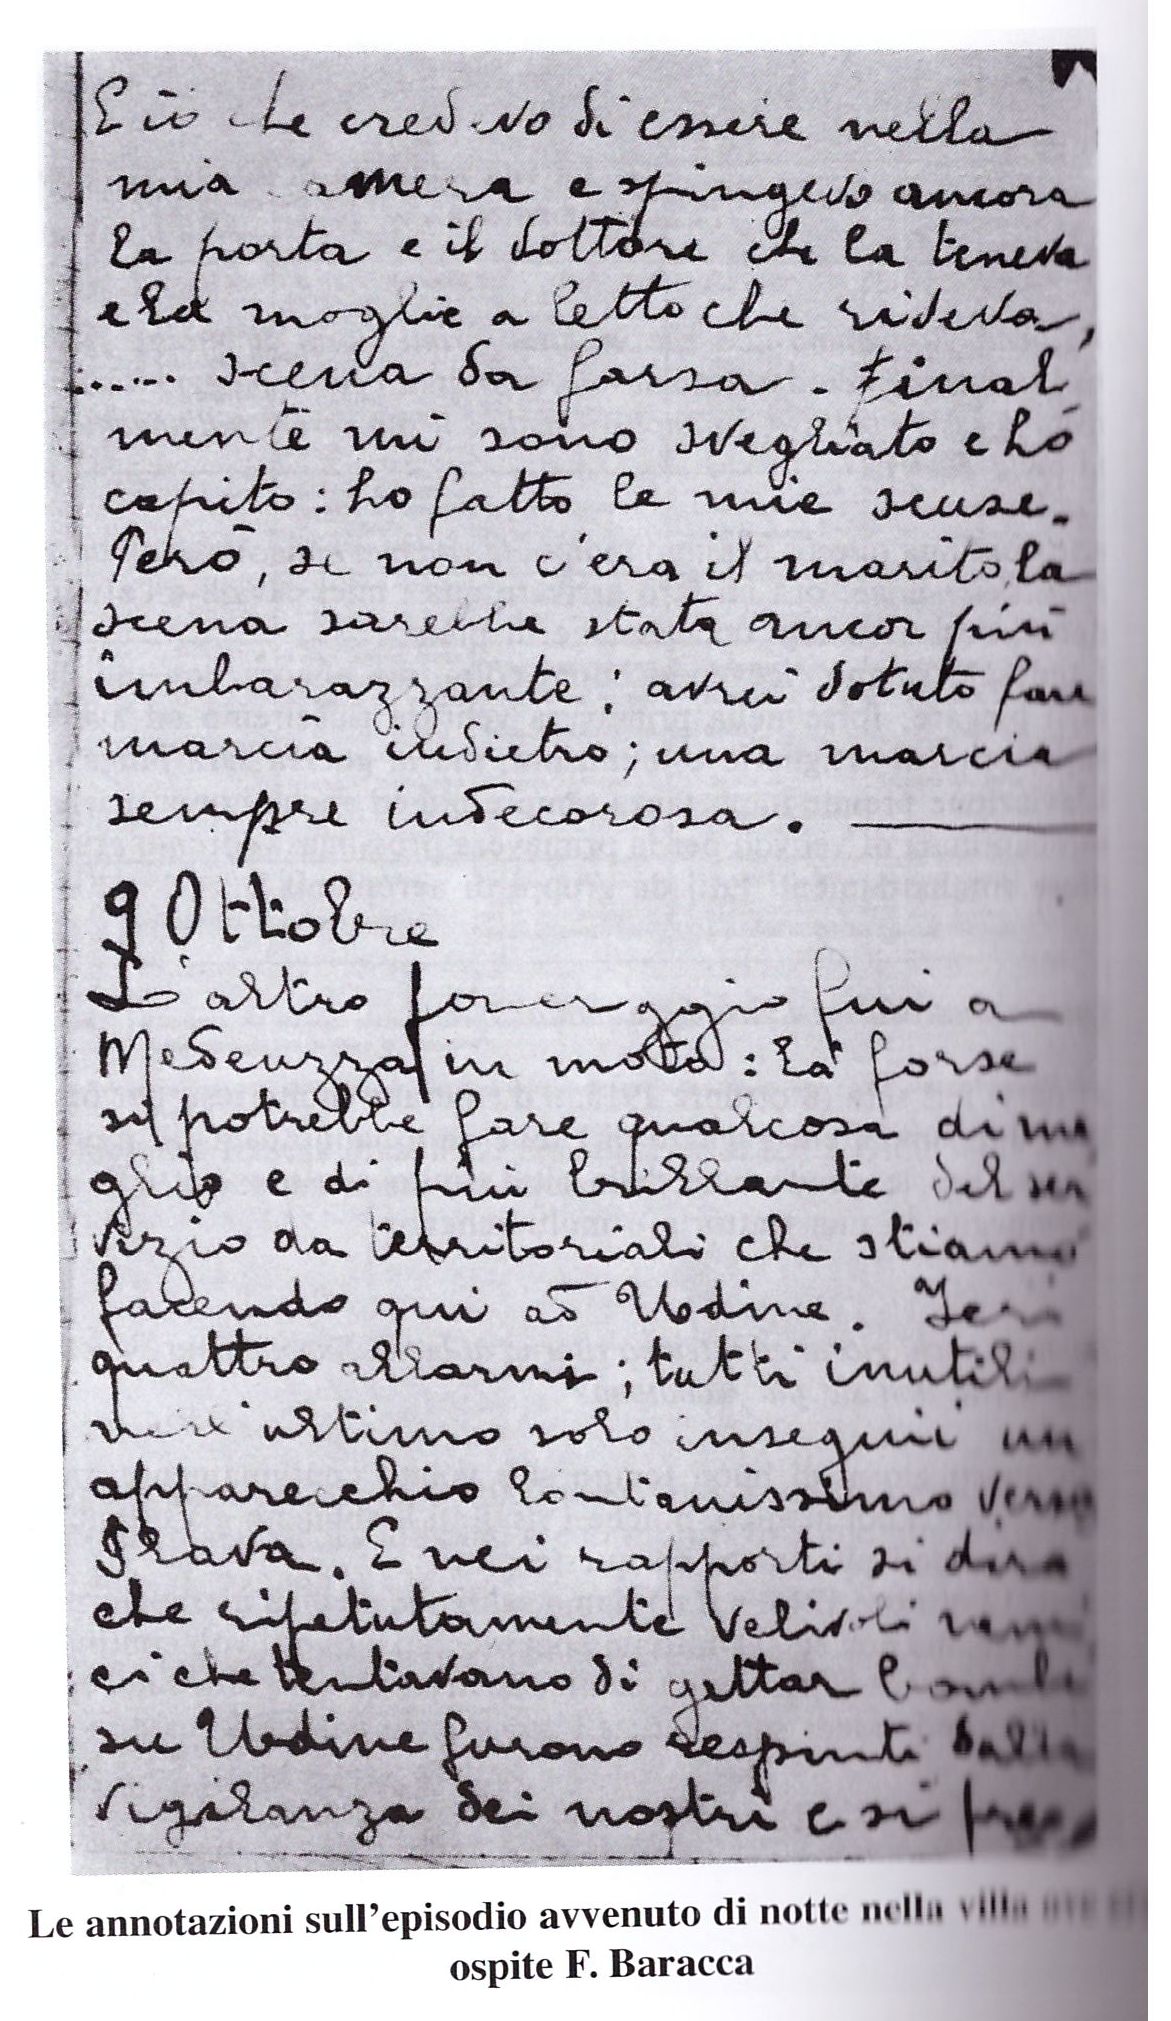 E io che credevo di essere nella
mia camera e spingevo ancora
la porta e il dottore che la teneva
e la moglie a letto che rideva,
..... scena da farsa. Final
mente mi sono svegliato e ho
capito: ho fatto le mie scuse.
Però, se non c'era il marito, la
scena sarebbe stata ancor più
imbarazzante; avrei dotuto fare
marcia indietro; una marcia
sempre indecorosa.
9 Ottobre
L'altro pomeriggio fui a
Medeuzza in moto: là forse
si potrebbe fare qualcosa di me
glio e di più brillante del ser
vizio da territoriali che stiamo
facendo qui ad Udine. Ieri
quattro allarmi; tutti inutili
nell'ultimo solo inseguii un
apparecchio lontanissimo verso
Plava. E nei rapporti si dirà
che ripetutamente velivoli nemi
ci che tentavano di gettar bombe
su Udine furono respinti dalla
vigilanza dei nostri e si
Le annotazioni sull'episodio avvenuto di notte nella villa
ospite F. Baracca